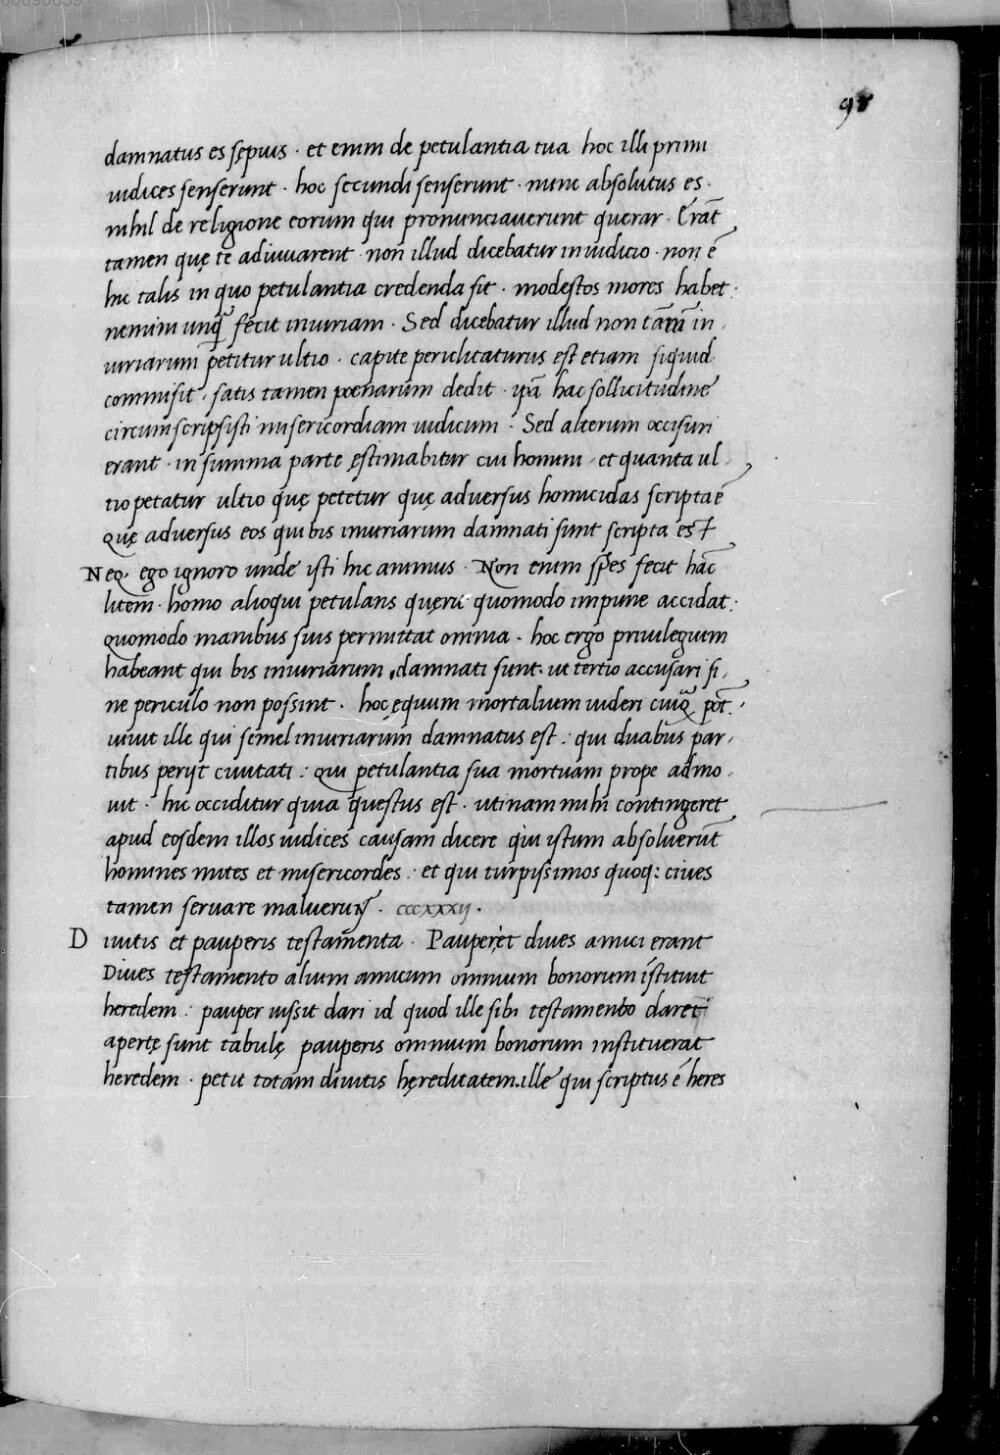 98
damnatus es sępius · et enim de petulantia tua hoc illi primi
iudices senserunt · hoc secundi senserunt · nunc absolutus es ·
nihil de religione eorum qui pronunciauerunt querar · Erāt
tamen quę te adiuuarent · non illud dicebatur in iudicio · non ē
hic talis in quo petulantia credenda sit · modestos mores habet ·
nemini unq̄ fecit iniuriam · Sed dicebatur illud non tām in
iuriarum petitur ultio · capite periclitaturus est etiam siquid
commisit · satis tamen poenarum dedit · ipā hac sollicitudine
circumscripsisti misericordiam iudicum · Sed alterum occisuri
erant · in summa parte ęstimabitur cui homini · et quanta ul
tio petatur ultio quę petetur quę aduersus homicidas scripta ē
Quę aduersus eos qui bis iniuriarum damnati sunt scripta est
Neq ego ignoro unde isti hic animus · Non enim spes fecit hāc
litem · homo alioqui petulans quęrit quomodo impune accidat :
quomodo manibus suis permittat omnia · hoc ergo priuilegium
habeant qui bis iniuriarum damnati sunt · ut tertio accusari si
ne periculo non possint · hoc ęquum mortalium uideri cuiq̄ pōt ·
uiuit ille qui semel iniuriarum damnatus est : qui duabus par
tibus perijt ciuitati : qui petulantia sua mortuam prope admo
uit · hic occiditur quia questus est · utinam mihi contingeret
apud eosdem illos iudices causam dicere qui istum absoluerūt
homines mites et misericordes · et qui turpissimos quoq: ciues
tamen seruare maluerunt · cccxxxij ·
Diuitis et pauperis testamenta · Pauper et diues amici erant
Diues testamento alium amicum omnium bonorum īstituit
heredem : pauper iussit dari id quod ille sibi testamento daret
apertę sunt tabulę pauperis omnium bonorum instituerat
heredem · petit totam diuitis hęreditatem · ille qui scriptus ē heres